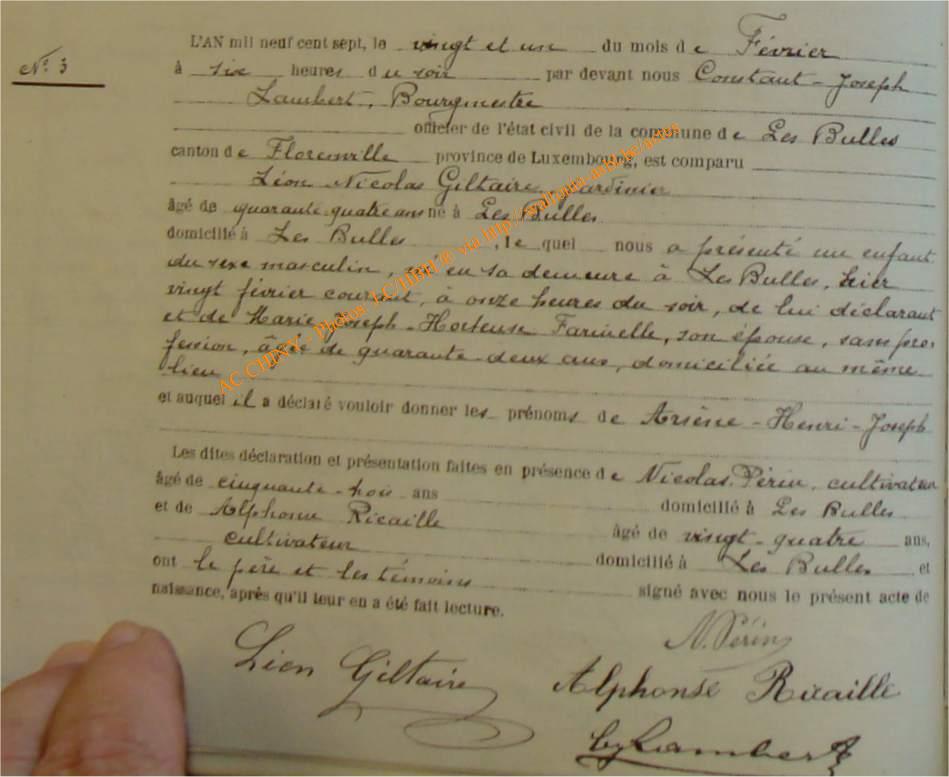 N° 3
L'AN mil neuf cent sept, le vingt et un du mois de Février
à six heures du soir par devant nous Constant-Joseph
Lambert, Bourgmestre
officier de l'état civil de la commune de Les Bulles
canton de Florenville province de Luxembourg, est comparu
Léon Nicolas Giltaire, jardinier
âgé de quarante-quatre ans né à Les Bulles
domicilié à Les Bulles, le quel nous a présenté un enfant
du sexe masculin, né en sa demeure à Les Bulles, hier
vingt février courant, à onze heures du soir, de lui déclarant
et de Marie-Joseph-Hortense Farinelle, son épouse, sans pro-
fession, âgée de quarante-deux ans, domiciliée au même
lieu
et auquel il a déclaré vouloir donner les prénoms de Arsène-Henri-Joseph
Les dites déclaration et présentation faites en présence de Nicolas Périn, cultivateur
âgé de cinquante-trois ans domicilié à Les Bulles
et de Alphonse Ricaille âgé de vingt-quatre ans,
cultivateur domicilié à Les Bulles, et
ont le père et les témoins signé avec nous le présent acte de
naissance, après qu'il leur en a été fait lecture.
N. Périn
Léon Giltaire
Alphonse Ricaille
Lambert
AC CHINY - Photos LC/HBH @ via http://